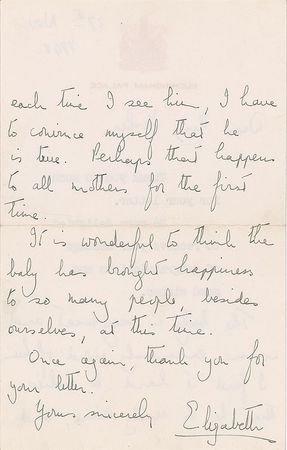 each time I see him, I have
to convince myself that he
is true. Perhaps that happens
to all mothers for the first
time.
It is wonderful to think the
baby has brought happiness
to so many people, besides
ourselves, at this time.
Once again, thank you for
your letter.
Yours sincerely
Elizabeth